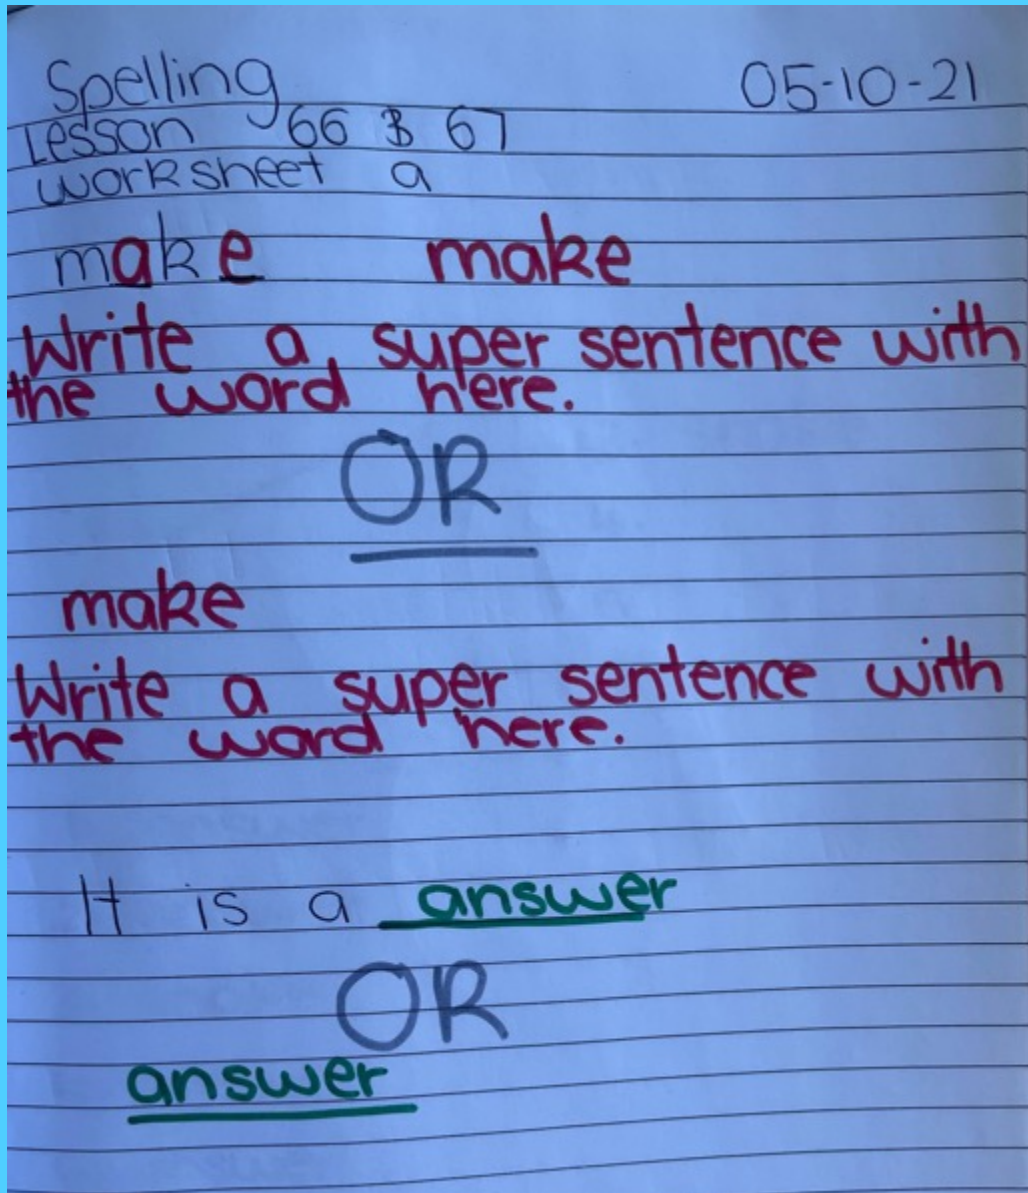 Spelling 05-10-21
Lesson 66 & 67
worksheet a
make make
Write a super sentence with
the word here.
OR
make
Write a super sentence with
the word here.
It is a answer
OR
answer